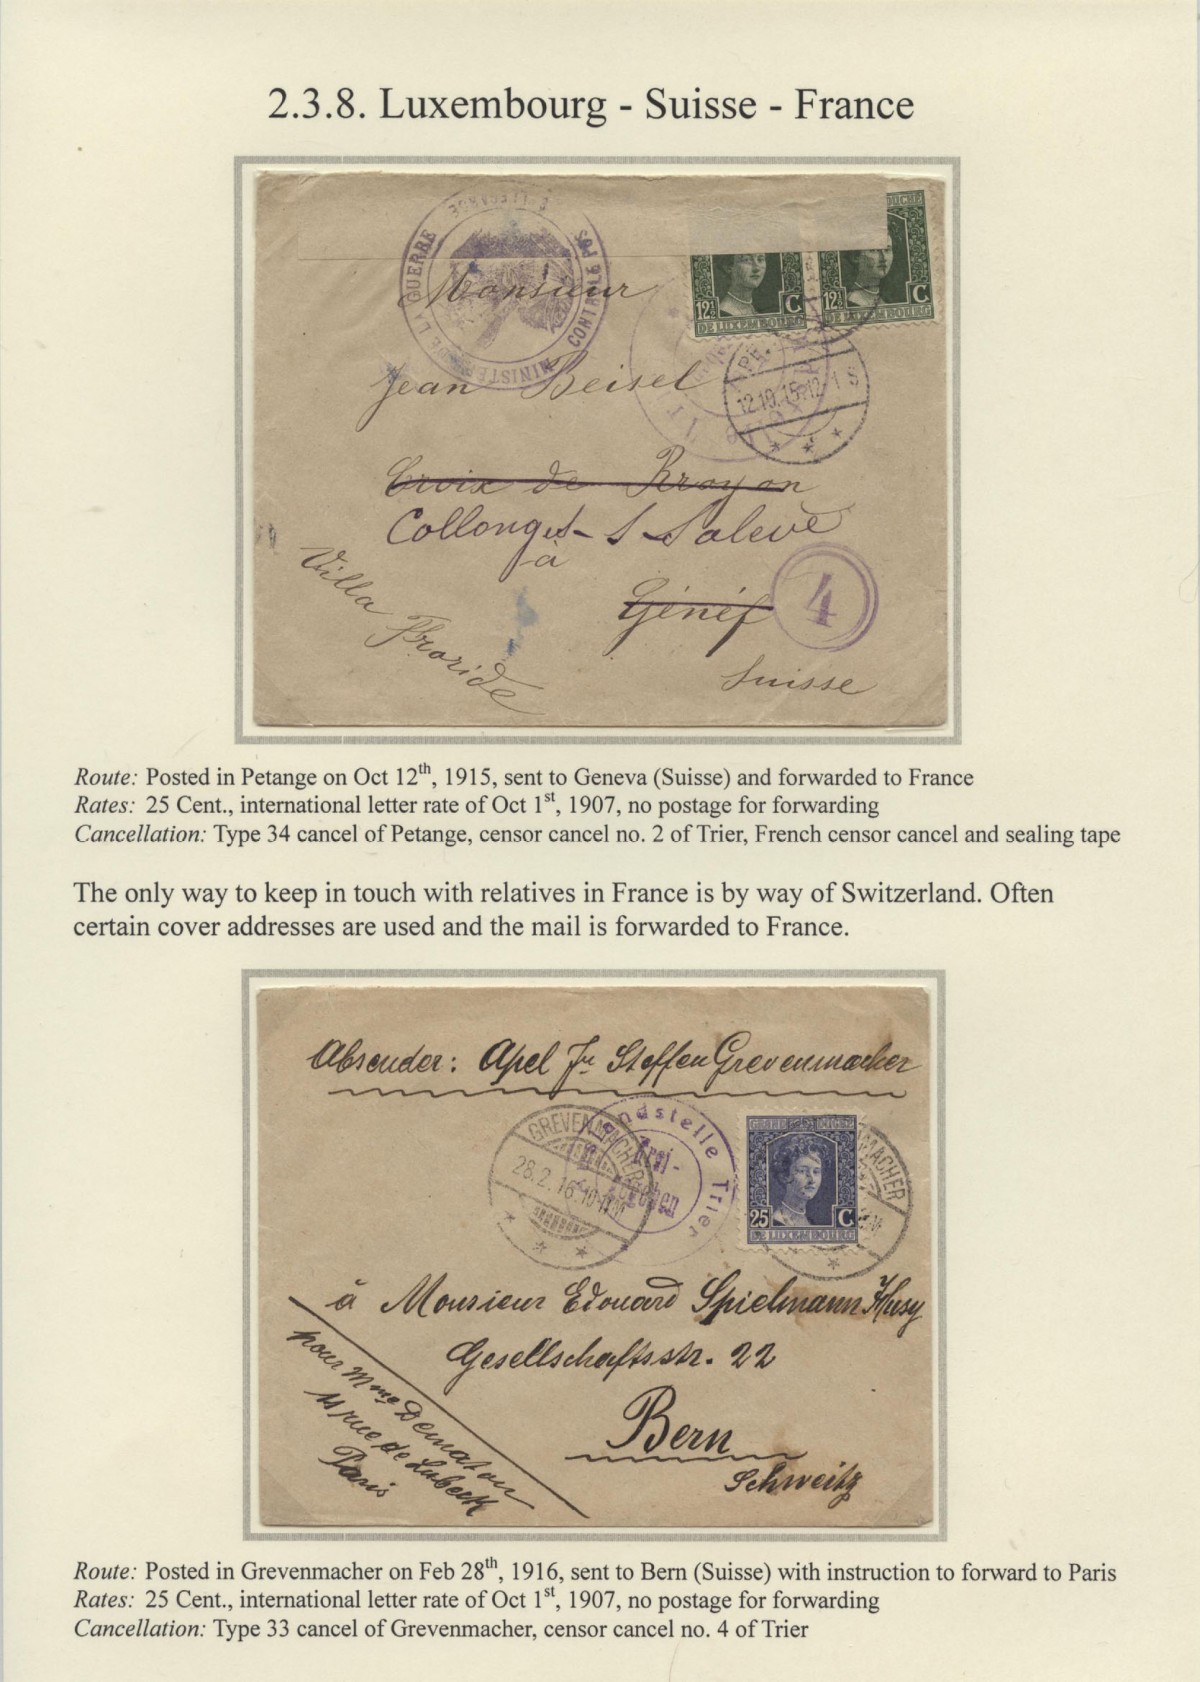 2.3.8. Luxembourg - Suisse - France
MINISTÈRE DE LA GUERRE
CONTRÔLE POS
12½ C
DE LUXEMBOURG
12½ C
DE LUXEMBOURG
12.10.15.12-1 S
Monsieur
Jean Beisel
Croix de Rroyon
Collonges-S-Salève
à
Généf
4
Suisse
Villa Froride
Route: Posted in Petange on Oct 12th, 1915, sent to Geneva (Suisse) and forwarded to France
Rates: 25 Cent., international letter rate of Oct 1st, 1907, no postage for forwarding
Cancellation: Type 34 cancel of Petange, censor cancel no. 2 of Trier, French censor cancel and sealing tape
The only way to keep in touch with relatives in France is by way of Switzerland. Often
certain cover addresses are used and the mail is forwarded to France.
Absender: Apel Jn Steffen Grevenmacher
GREVENMACHER
28.2.16.10-11V
Trier
25 C
DE LUXEMBOURG
à Monsieur Edouard Spielmann Husy
Gesellschaftsstr. 22
Bern
Schweitz
pour Mme Dematon
11 rue de Lubeck
Paris
Route: Posted in Grevenmacher on Feb 28th, 1916, sent to Bern (Suisse) with instruction to forward to Paris
Rates: 25 Cent., international letter rate of Oct 1st, 1907, no postage for forwarding
Cancellation: Type 33 cancel of Grevenmacher, censor cancel no. 4 of Trier